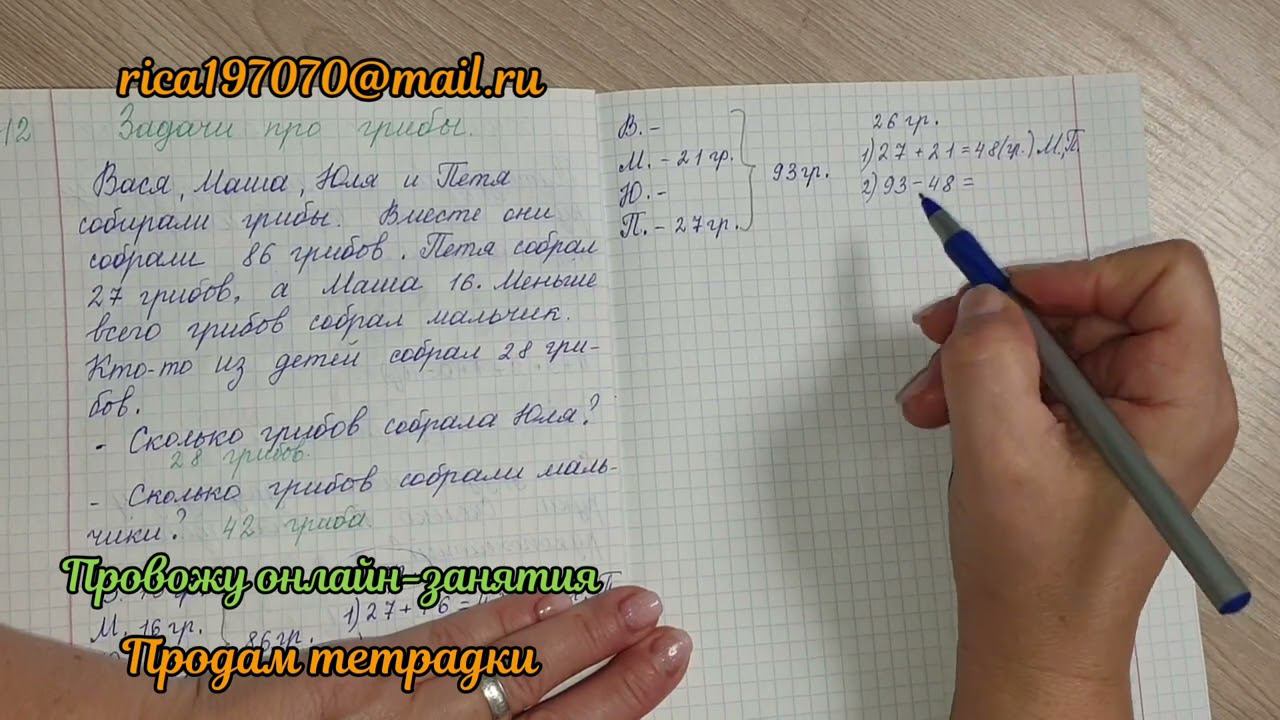 rica197070@mail.ru
12
Задачи про грибы.
Вася, Маша, Юля и Петя
собирали грибы. Вместе они
собрали 86 грибов. Петя собрал
27 грибов, а Маша 16. Меньше
всего грибов собрал мальчик.
Кто-то из детей собрал 28 гри-
бов.
- Сколько грибов собрала Юля?
28 грибов.
- Сколько грибов собрали маль-
чики? 42 гриба
Провожу онлайн-занятия
1) 27 +
М. 16 гр.
86 гр.
Продам тетрадки
В. -
М. - 21 гр.
Ю. -
П. - 27 гр.
93 гр.
26 гр.
1) 27 + 21 = 48 (гр.) М, П.
2) 93 - 48 =